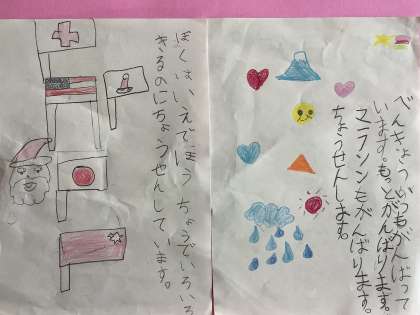 べんきょういつもがんばって
います。もっとがんばります。
マラソンもがんばります。
ちょうせんします。
ぼくはいえでほうちょうでいろいろ
きるのにちょうせんしています。